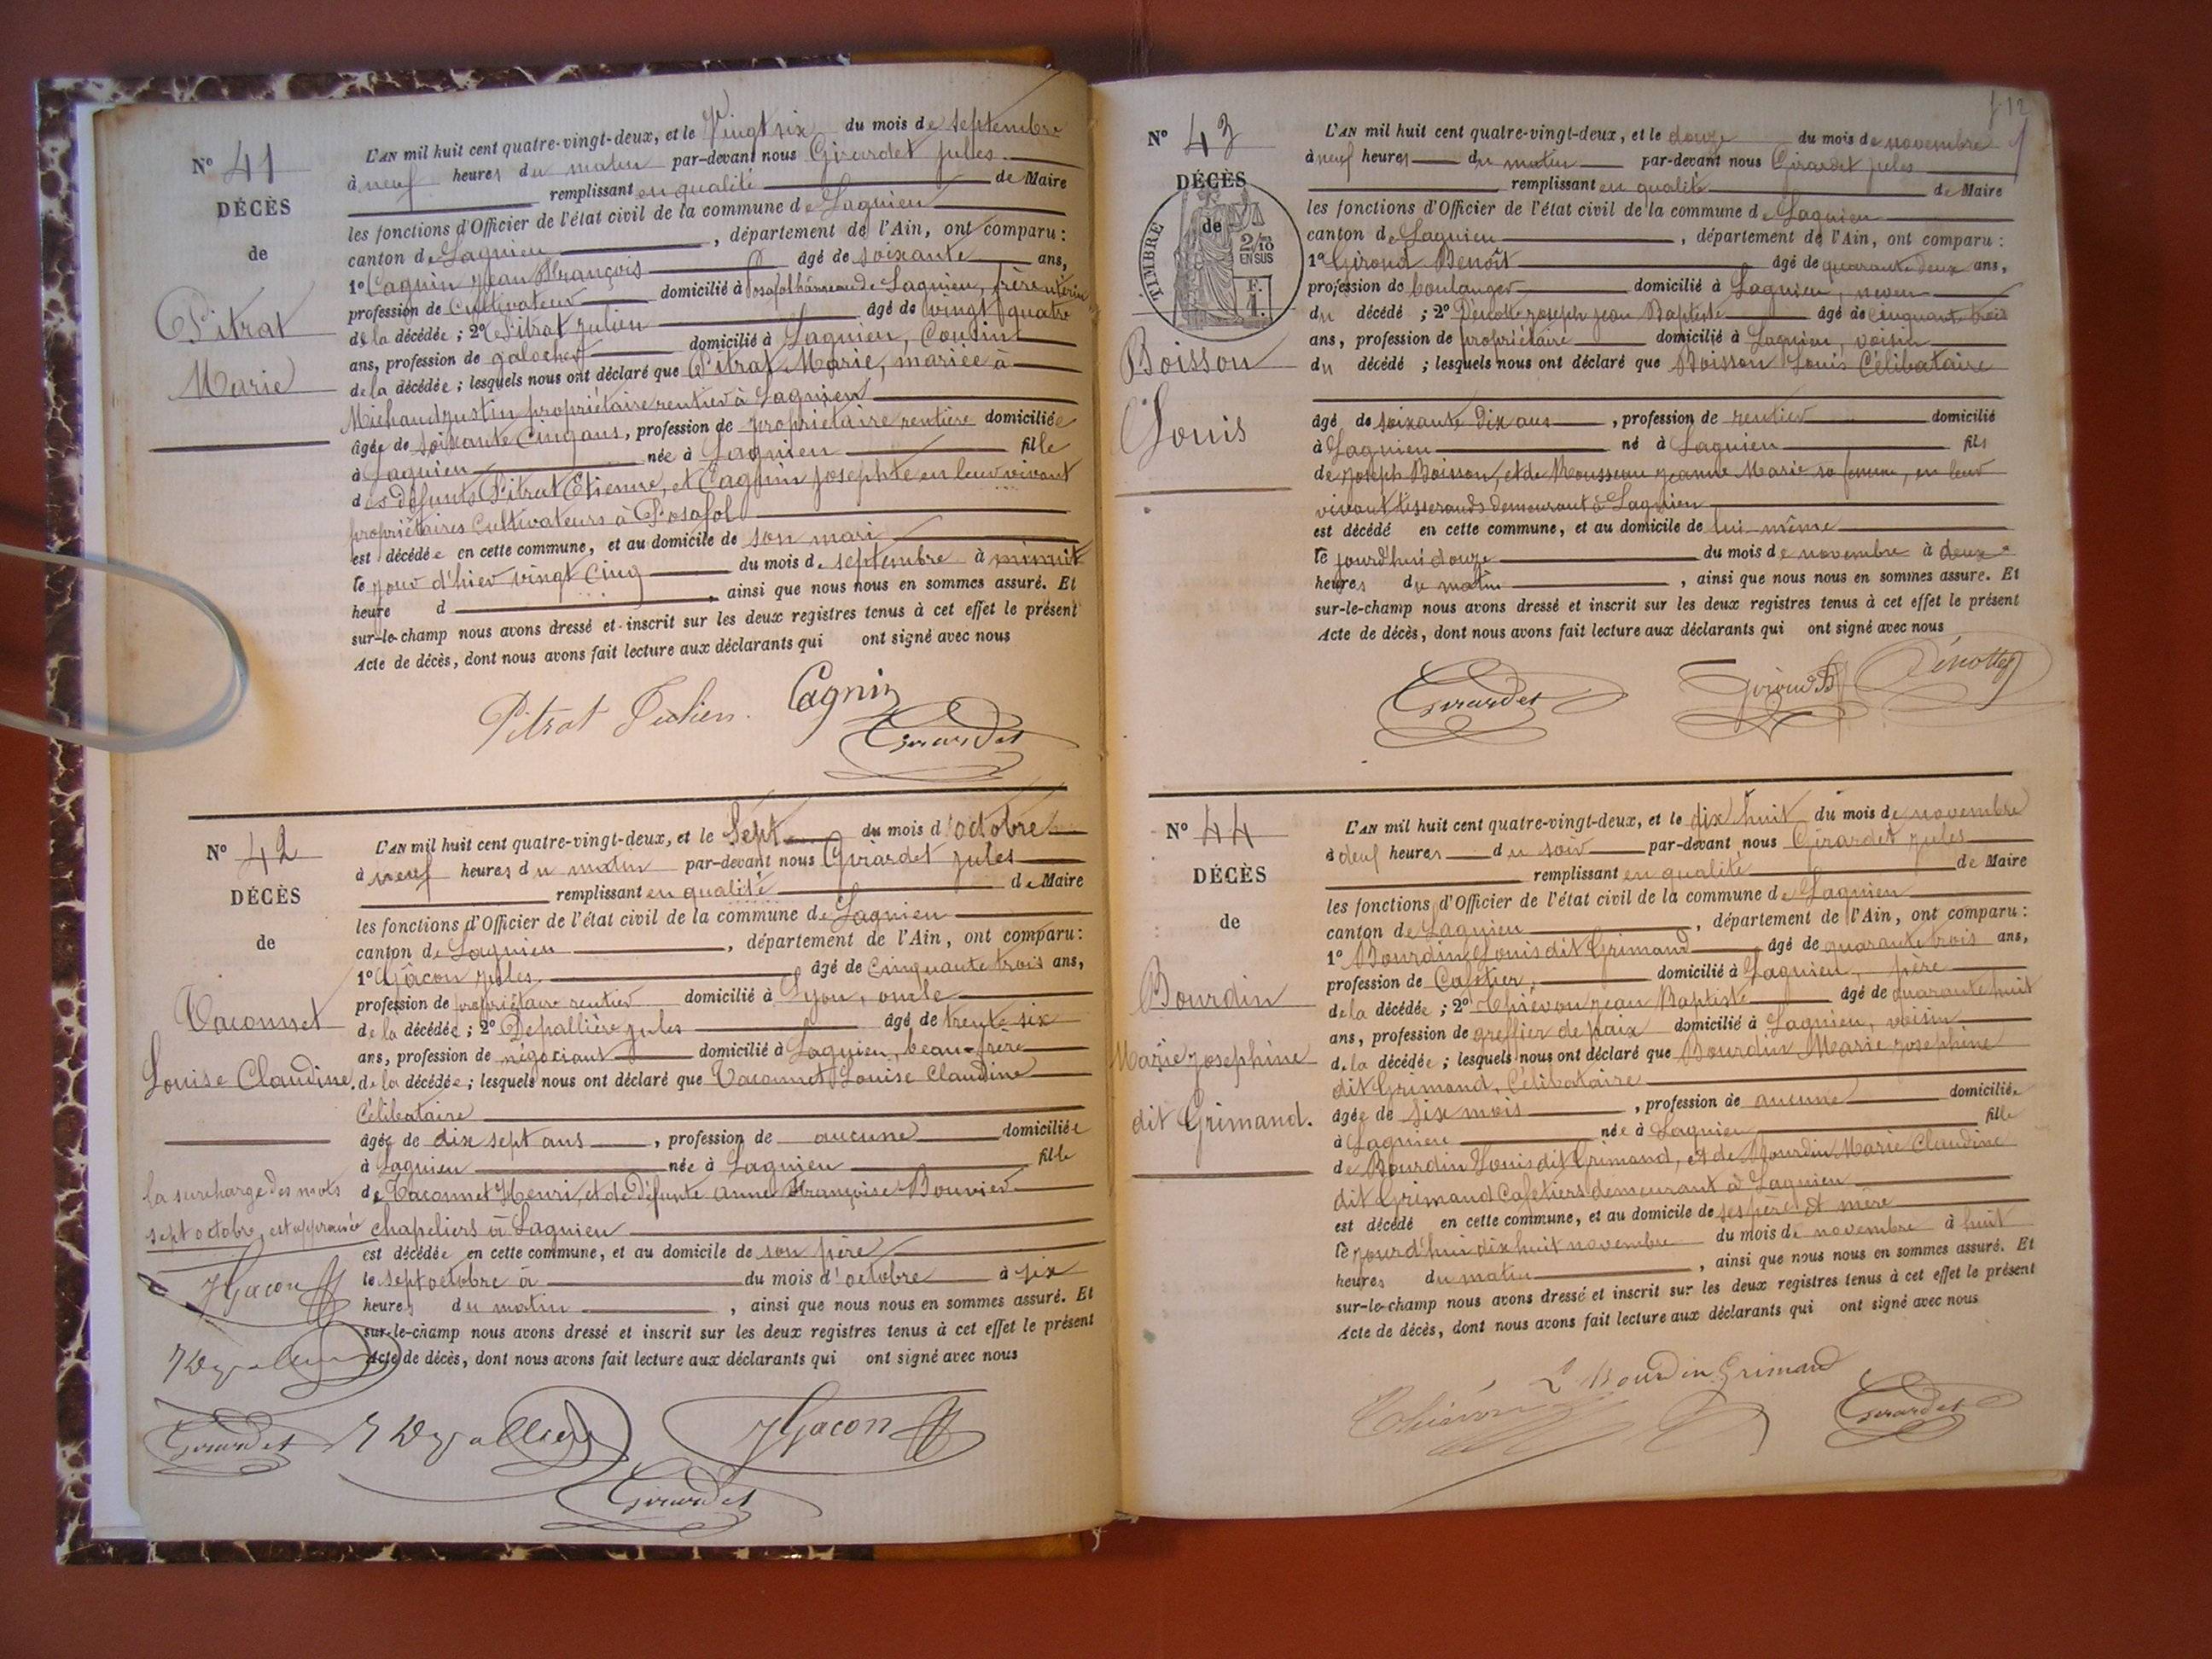 N° 41
DÉCÈS
de
Pitrat
Marie
L'AN mil huit cent quatre-vingt-deux, et le Vingt six du mois de septembre
à neuf heures du matin par-devant nous Girardet jules
remplissant en qualité de Maire
les fonctions d'Officier de l'état civil de la commune de Lagnieu
canton de Lagnieu, département de l'Ain, ont comparu :
1° Cagnin jean François âgé de soixante ans,
profession de Cultivateur domicilié à Posafol hameau de Lagnieu, frère utérin
de la décédée ; 2° Pitrat julien âgé de vingt quatre
ans, profession de galocher domicilié à Lagnieu, Cousin
de la décédée ; lesquels nous ont déclaré que Pitrat Marie, mariée à
Michaud justin propriétaire rentier à Lagnieu
âgée de soixante Cinq ans, profession de propriétaire rentière domiciliée
à Lagnieu née à Lagnieu fille
des défunts Pitrat Etienne, et Cagnin josephte en leur vivant
propriétaires Cultivateurs à Posafol
est décédée en cette commune, et au domicile de son mari
le jour d'hier vingt Cinq du mois de septembre à minuit
heure d , ainsi que nous nous en sommes assuré. Et
sur-le-champ nous avons dressé et inscrit sur les deux registres tenus à cet effet le présent
Acte de décès, dont nous avons fait lecture aux déclarants qui ont signé avec nous
Pitrat Julien Cagnin
Girardet
N° 42
DÉCÈS
de
Taconnet
Louise Claudine.
L'AN mil huit cent quatre-vingt-deux, et le Sept du mois d'octobre
à neuf heures du matin par-devant nous Girardet jules
remplissant en qualité de Maire
les fonctions d'Officier de l'état civil de la commune de Lagnieu
canton de Lagnieu, département de l'Ain, ont comparu :
1° Gacon jules âgé de Cinquante trois ans,
profession de propriétaire rentier domicilié à Lyon, oncle
de la décédée ; 2° Depallière jules âgé de trente six
ans, profession de négociant domicilié à Lagnieu, beau-frère
de la décédée ; lesquels nous ont déclaré que Taconnet Louise Claudine
Célibataire
âgée de dix sept ans, profession de aucune domiciliée
à Lagnieu née à Lagnieu fille
de Taconnet Henri, et de Défunte Anne Françoise Bouvier
chapeliers à Lagnieu
est décédée en cette commune, et au domicile de son père
le sept octobre à du mois d'octobre à six
heures du matin, ainsi que nous nous en sommes assuré. Et
sur-le-champ nous avons dressé et inscrit sur les deux registres tenus à cet effet le présent
Acte de décès, dont nous avons fait lecture aux déclarants qui ont signé avec nous
la surcharge des mots
sept octobre, est approuvée
JGacon
Girardet JGacon
Girardet
N° 43
DÉCÈS
de
TIMBRE
2/10
EN SUS
F.
1.
Boisson
Louis
f 12
L'AN mil huit cent quatre-vingt-deux, et le douze du mois de novembre
à neuf heures du matin par-devant nous Girardet jules
remplissant en qualité de Maire
les fonctions d'Officier de l'état civil de la commune de Lagnieu
canton de Lagnieu, département de l'Ain, ont comparu :
1° Giroud Benoît âgé de quarante deux ans,
profession de boulanger domicilié à Lagnieu, neveu
du décédé ; 2° Dénotte joseph jean Baptiste âgé de cinquante trois
ans, profession de propriétaire domicilié à Lagnieu, voisin
du décédé ; lesquels nous ont déclaré que Boisson Louis Célibataire
âgé de soixante dix ans, profession de rentier domicilié
à Lagnieu né à Lagnieu fils
de joseph Boisson, et de Mousseau jeanne Marie sa femme, en leur
vivant tisserands demeurant à Lagnieu
est décédé en cette commune, et au domicile de lui-même
le jourd'hui douze du mois de novembre à deux
heures du matin, ainsi que nous nous en sommes assuré. Et
sur-le-champ nous avons dressé et inscrit sur les deux registres tenus à cet effet le présent
Acte de décès, dont nous avons fait lecture aux déclarants qui ont signé avec nous
Girardet Giroud B Dénotte
N° 44
DÉCÈS
de
Bourdin
Marie josephine
dit Grimand.
L'AN mil huit cent quatre-vingt-deux, et le dix huit du mois de novembre
à deuf heures du soir par-devant nous Girardet jules
remplissant en qualité de Maire
les fonctions d'Officier de l'état civil de la commune de Lagnieu
canton de Lagnieu, département de l'Ain, ont comparu :
1° Bourdin Louis dit Grimand âgé de quarante trois ans,
profession de Cafetier, domicilié à Lagnieu, père
de la décédée ; 2° Thiévon jean Baptiste âgé de quarante huit
ans, profession de greffier de paix domicilié à Lagnieu, voisin
de la décédée ; lesquels nous ont déclaré que Bourdin Marie josephine
dit Grimand, Célibataire
âgée de six mois, profession de aucune domiciliée
à Lagnieu née à Lagnieu fille
de Bourdin Louis dit Grimand, et de Bourdin Marie Claudine
dit Grimand Cafetiers demeurant à Lagnieu
est décédé en cette commune, et au domicile de ses père et mère
le jourd'hui dix huit novembre du mois de novembre à huit
heures du matin, ainsi que nous nous en sommes assuré. Et
sur-le-champ nous avons dressé et inscrit sur les deux registres tenus à cet effet le présent
Acte de décès, dont nous avons fait lecture aux déclarants qui ont signé avec nous
L Bourdin Grimand
Thiévon Girardet